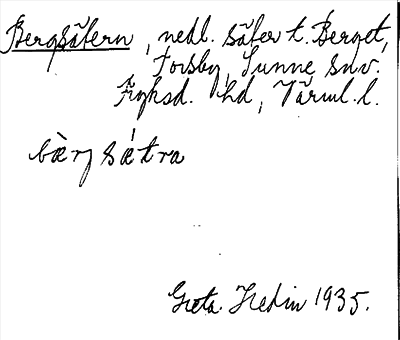 Bergsätern, nedl. säter t. Berget,
Forsby, Sunne snv.
Fryksd. hd, Värml. l.
bærj sätra
Greta Hedin 1935.